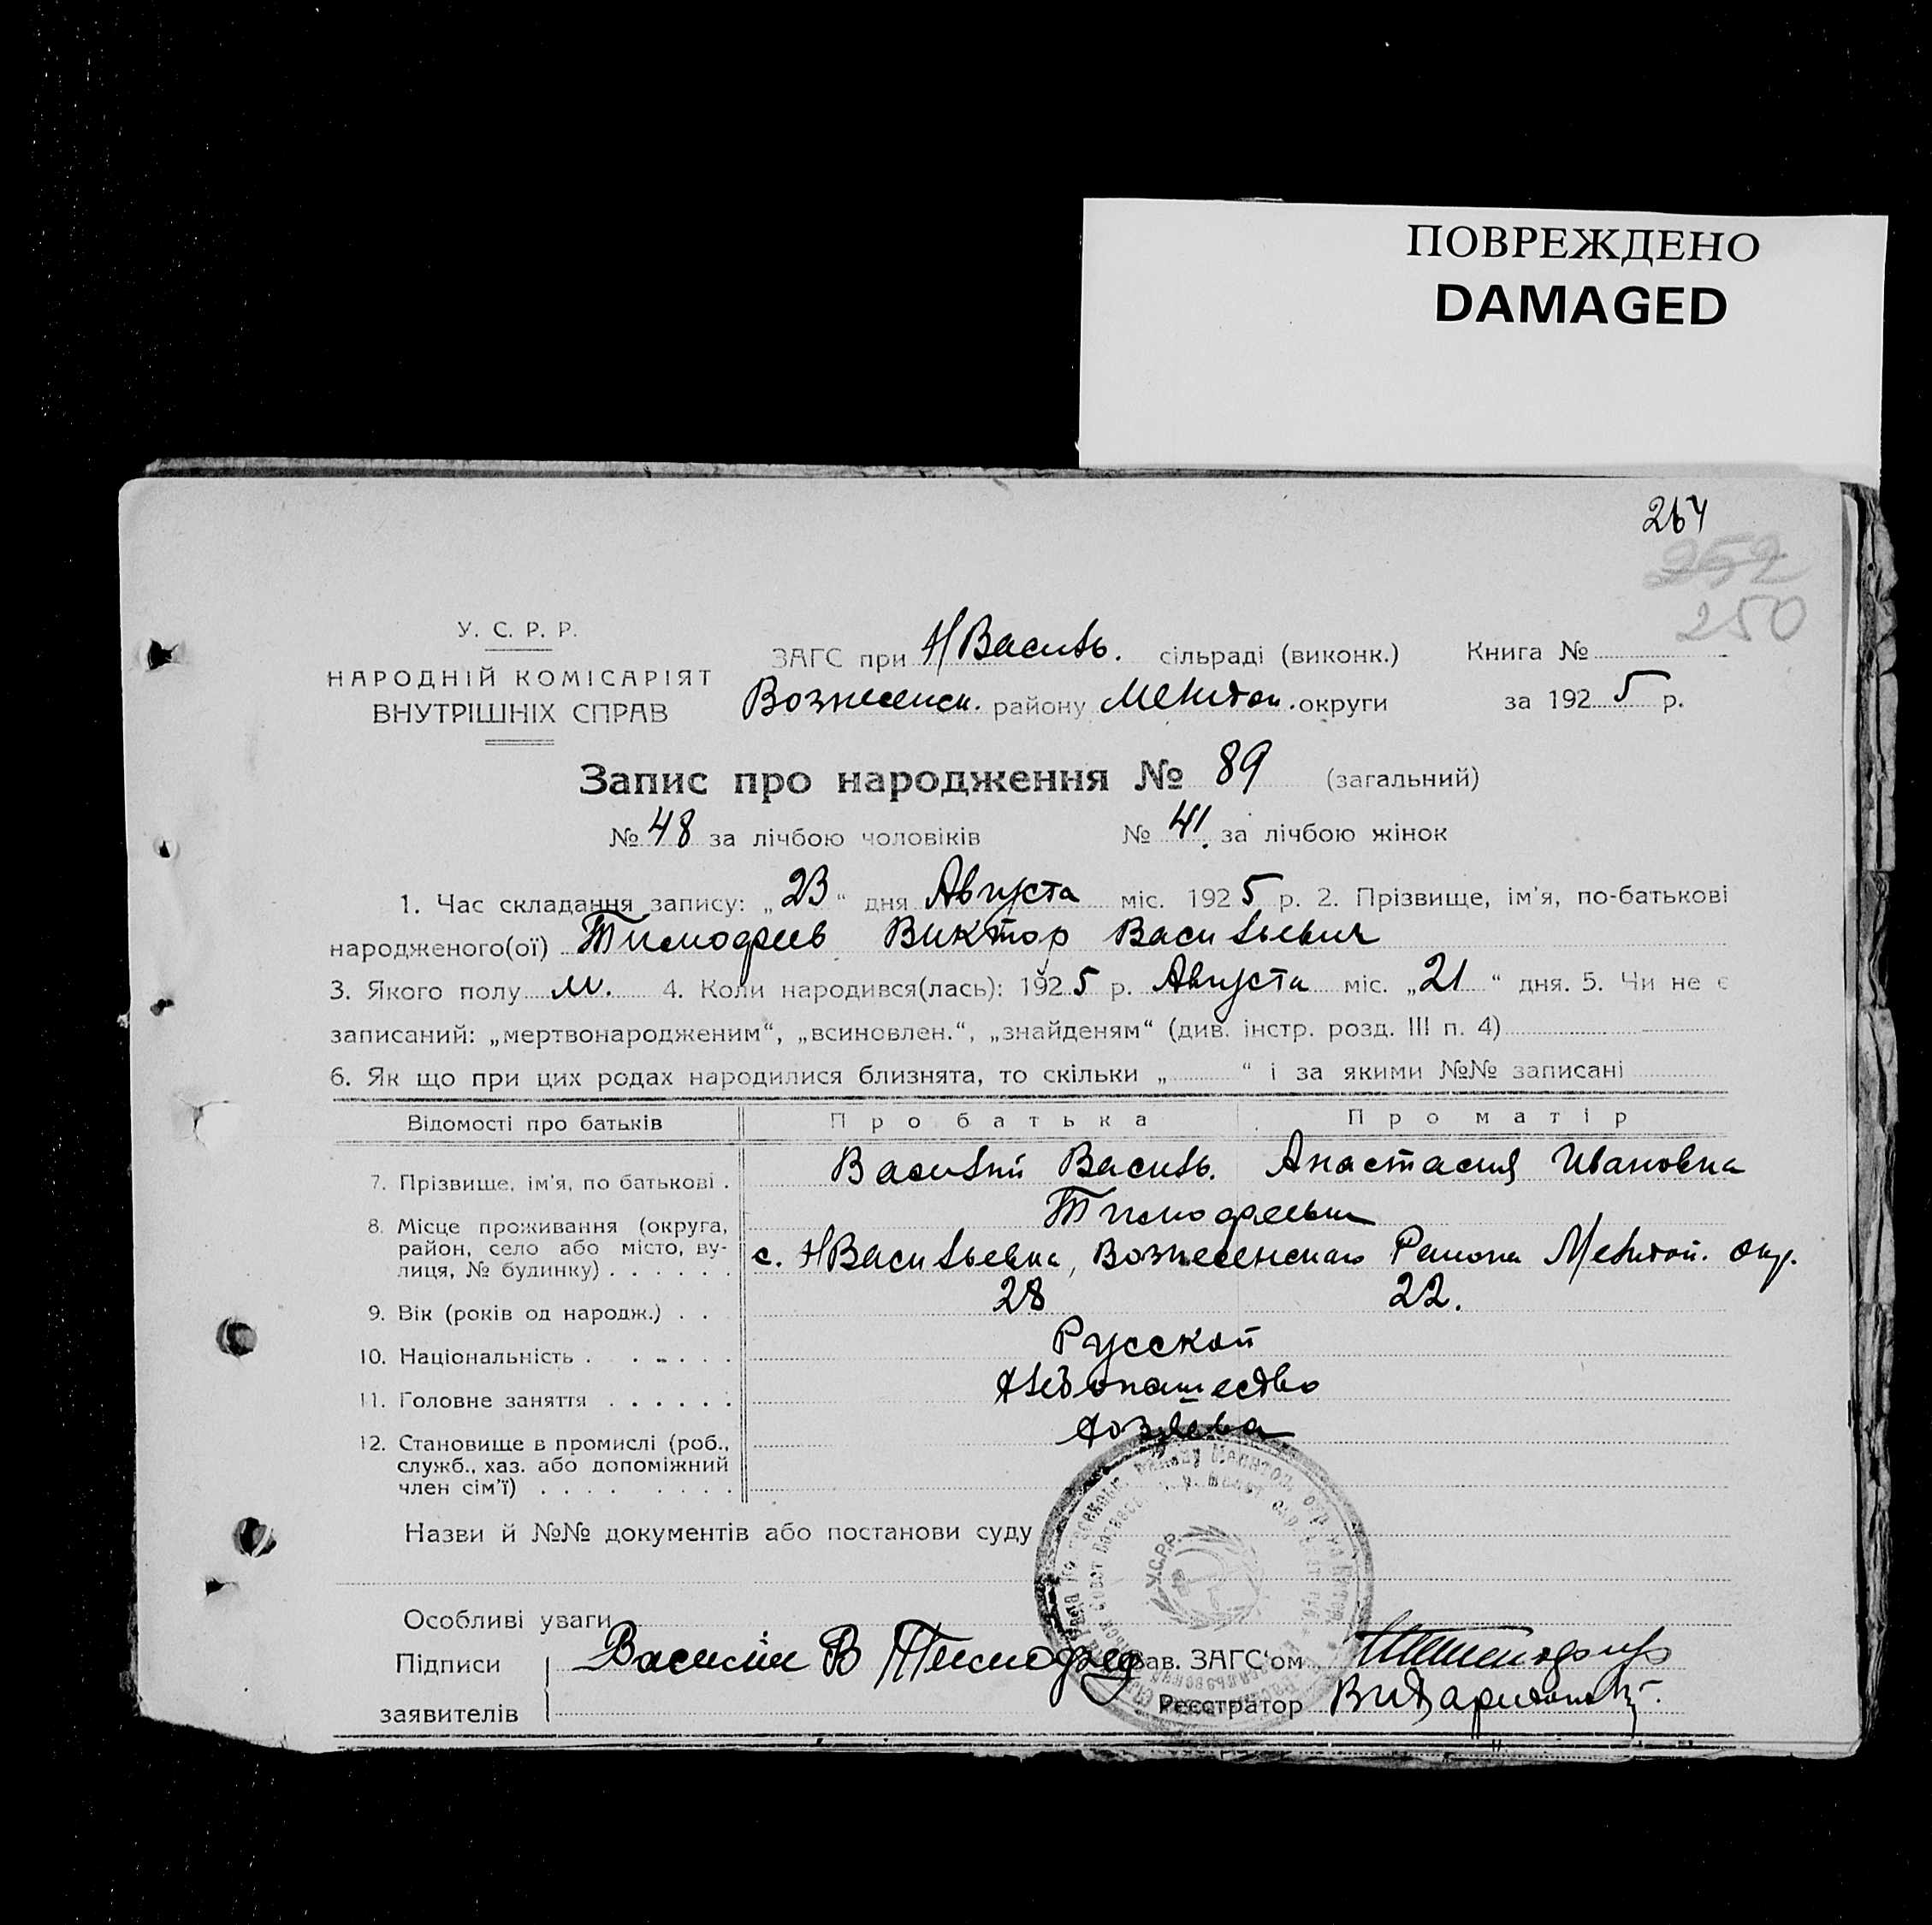 ПОВРЕЖДЕНО
DAMAGED
264
252
250
У. С. Р. Р.
НАРОДНІЙ КОМІСАРІЯТ
ВНУТРІШНІХ СПРАВ
ЗАГС при НВасиль. сільраді (виконк.) Книга №
Вознесенск. району Мелитоп. округи за 1925 р.
Запис про народження № 89 (загальний)
№ 48 за лічбою чоловіків № 41. за лічбою жінок
1. Час складання запису: „23“ дня Августа міс. 1925 р. 2. Прізвище, ім'я, по-батькові
народженого(ої) Тимофеев Виктор Васильевич
3. Якого полу м. 4. Коли народився(лась): 1925 р. Августа міс. „21“ дня. 5. Чи не є
записаний: „мертвонародженим“, „всиновлен.“, „знайденям“ (див. інстр. розд. III п. 4)
6. Як що при цих родах народилися близнята, то скільки „ “ і за якими №№ записані
Відомості про батьків Про батька Про матір
7. Прізвище, ім'я, по батькові . Василий Василь. Анастасия Ивановна
Тимофеевы
8. Місце проживання (округа,
район, село або місто, ву-
лиця, № будинку) . . . . . . с. НВасильевка, Вознесенского Района Мелитоп. окр.
9. Вік (років од народж.) . . 28 22.
10. Національність . . . . . . Русской
11. Головне заняття . . . . . . Хлебопашество
12. Становище в промислі (роб.,
служб., хаз. або допоміжний
член сім'ї) . . . . . . . . .
Назви й №№ документів або постанови суду
У.С.Р.Р.
Особливі уваги
Підписи Василий В Тимофеев Зав. ЗАГС'ом
заявителів Реєстратор